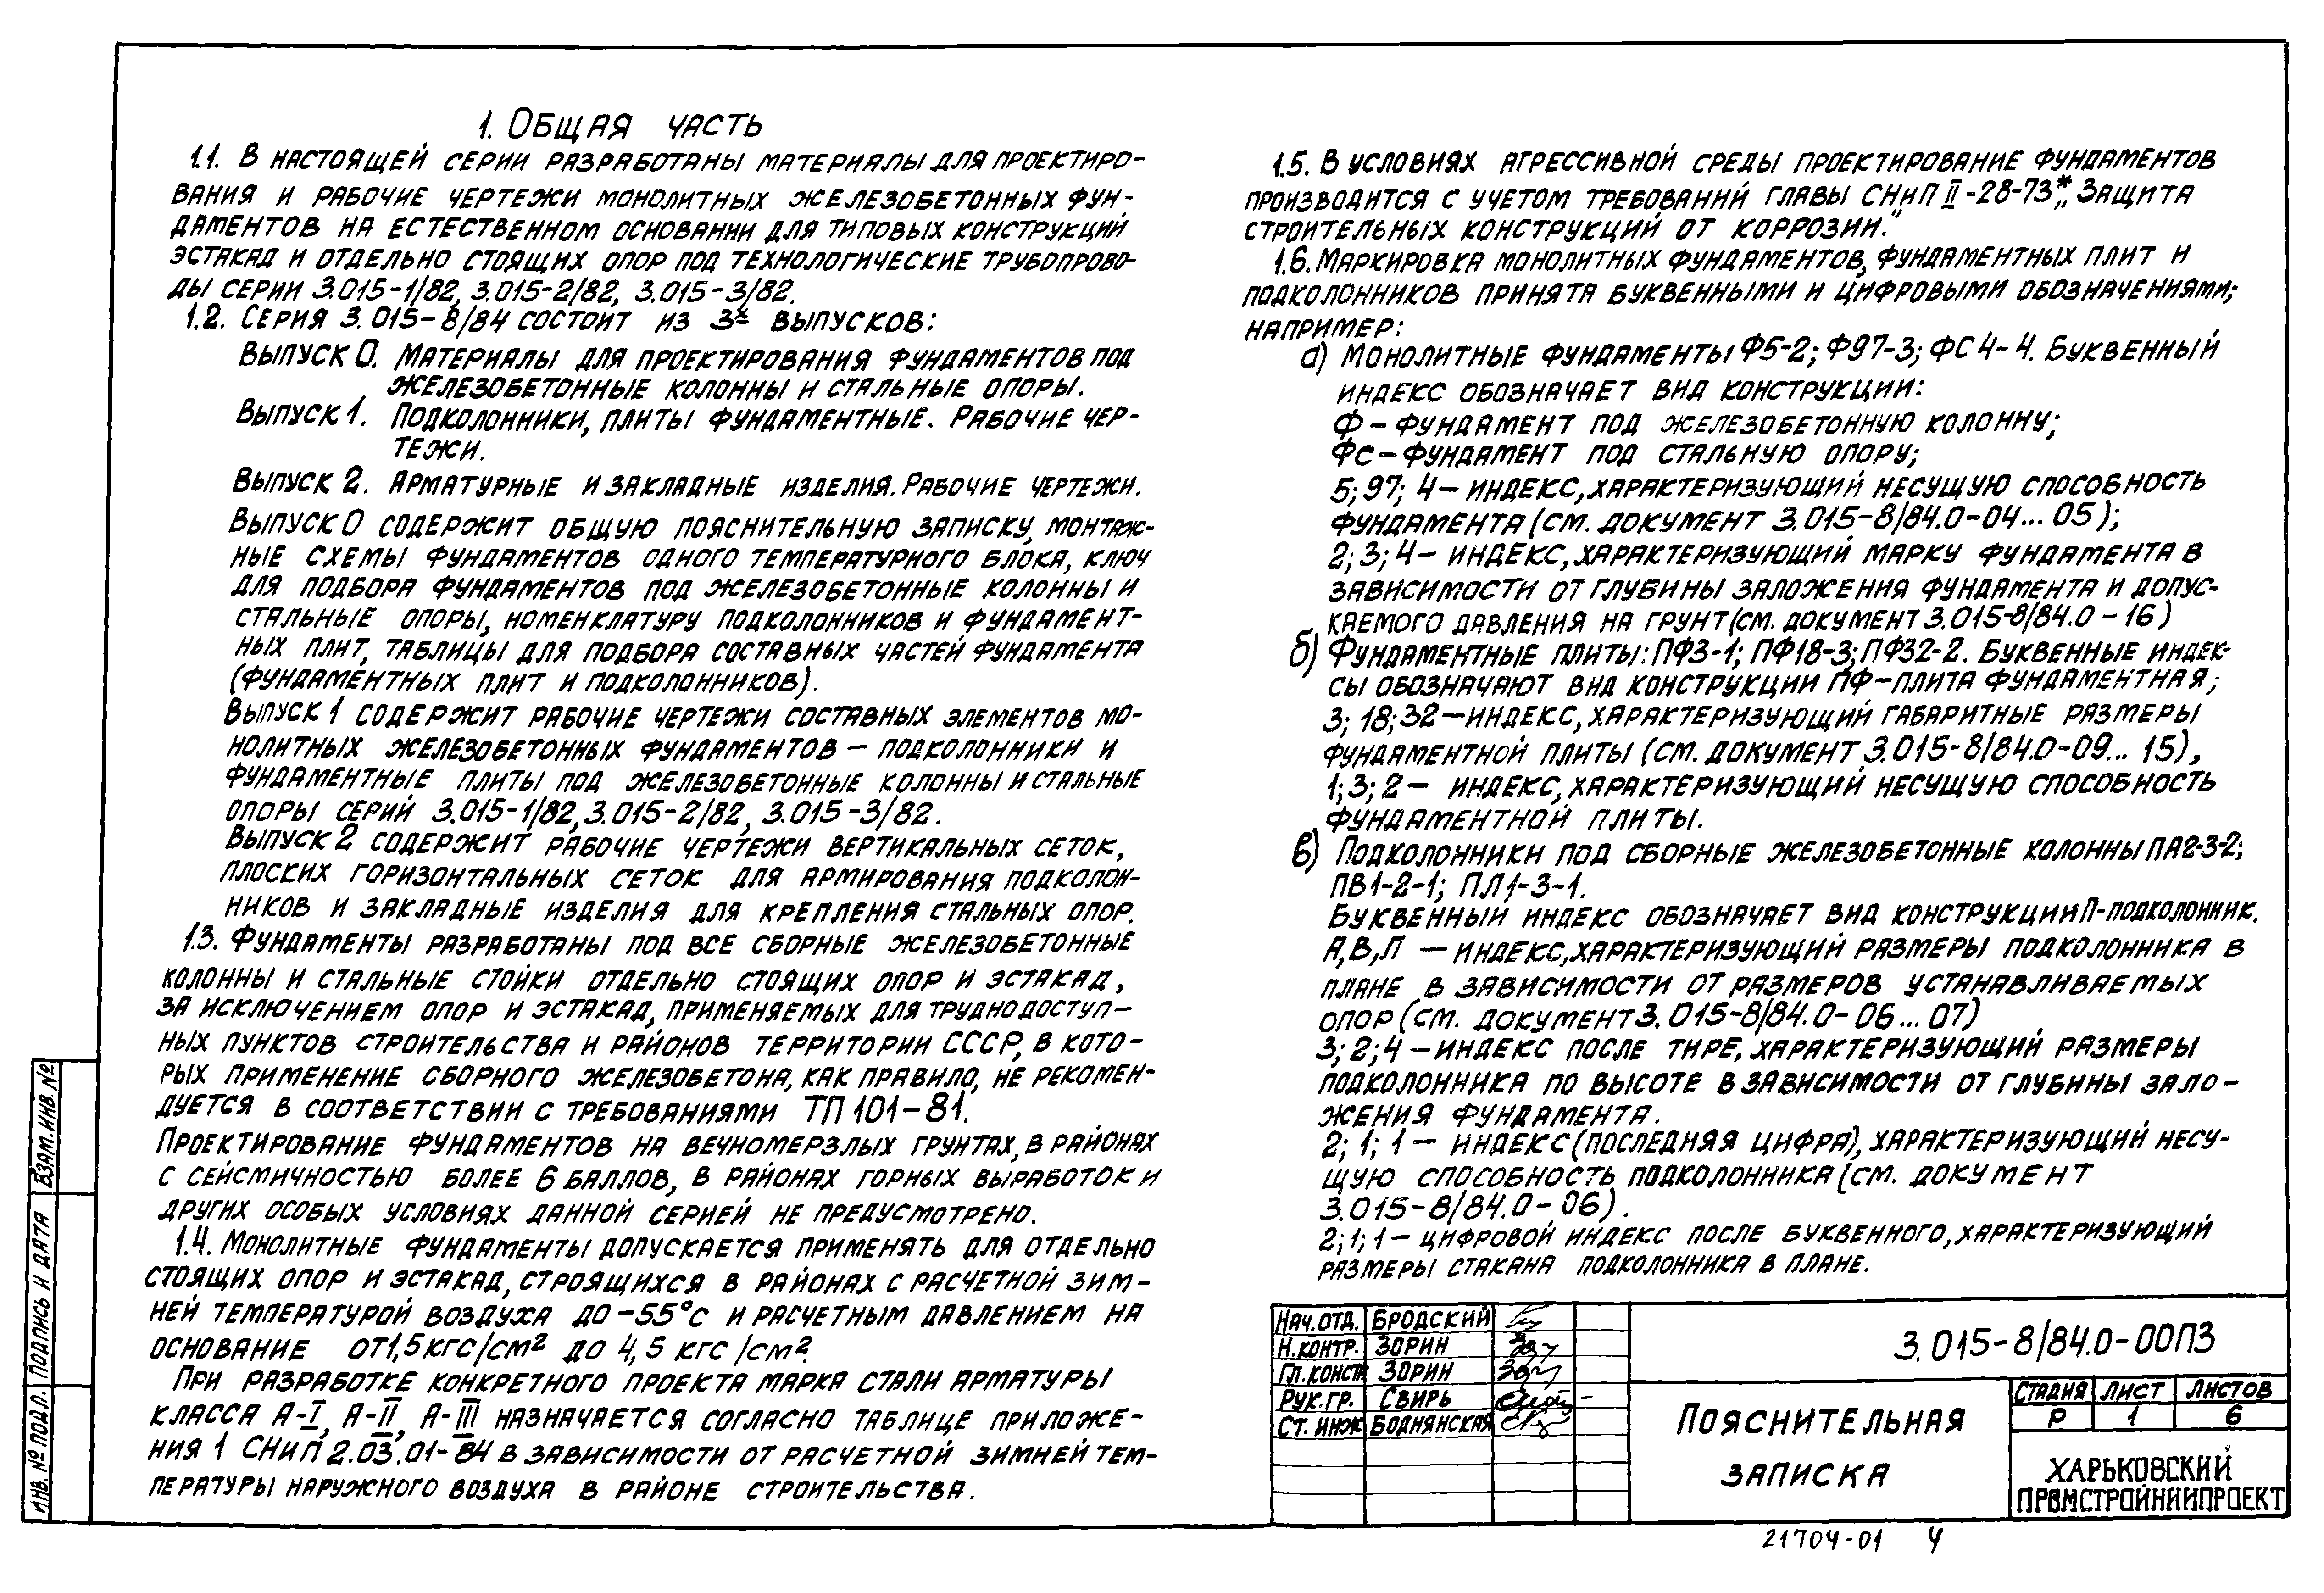 1. Общая часть
1.1. В настоящей серии разработаны материалы для проектиро-
вания и рабочие чертежи монолитных железобетонных фун-
даментов на естественном основании для типовых конструкций
эстакад и отдельно стоящих опор под технологические трубопрово-
ды серии 3.015-1/82, 3.015-2/82, 3.015-3/82.
1.2. Серия 3.015-8/84 состоит из 3х выпусков:
Выпуск 0. Материалы для проектирования фундаментов под
железобетонные колонны и стальные опоры.
Выпуск 1. Подколонники, плиты фундаментные. Рабочие чер-
тежи.
Выпуск 2. Арматурные и закладные изделия. Рабочие чертежи.
Выпуск 0 содержит общую пояснительную записку, монтаж-
ные схемы фундаментов одного температурного блока, ключ
для подбора фундаментов под железобетонные колонны и
стальные опоры, номенклатуру подколонников и фундамент-
ных плит, таблицы для подбора составных частей фундамента
(фундаментных плит и подколонников).
Выпуск 1 содержит рабочие чертежи составных элементов мо-
нолитных железобетонных фундаментов — подколонники и
фундаментные плиты под железобетонные колонны и стальные
опоры серий 3.015-1/82, 3.015-2/82, 3.015-3/82.
Выпуск 2 содержит рабочие чертежи вертикальных сеток,
плоских горизонтальных сеток для армирования подколон-
ников и закладные изделия для крепления стальных опор.
1.3. Фундаменты разработаны под все сборные железобетонные
колонны и стальные стойки отдельно стоящих опор и эстакад,
за исключением опор и эстакад, применяемых для труднодоступ-
ных пунктов строительства и районов территории СССР, в кото-
рых применение сборного железобетона, как правило, не рекомен-
дуется в соответствии с требованиями ТП 101-81.
Проектирование фундаментов на вечномерзлых грунтах, в районах
с сейсмичностью более 6 баллов, в районах горных выработок и
других особых условиях данной серией не предусмотрено.
1.4. Монолитные фундаменты допускается применять для отдельно
стоящих опор и эстакад, строящихся в районах с расчетной зим-
ней температурой воздуха до -55°С и расчетным давлением на
основание от 1,5 кгс/см² до 4,5 кгс/см².
При разработке конкретного проекта марка стали арматуры
класса А-I, А-II, А-III назначается согласно таблице приложе-
ния 1 СНиП 2.03.01-84 в зависимости от расчетной зимней тем-
пературы наружного воздуха в районе строительства.
1.5. В условиях агрессивной среды проектирование фундаментов
производится с учетом требований главы СНиП II-28-73* „Защита
строительных конструкций от коррозии."
1.6. Маркировка монолитных фундаментов, фундаментных плит и
подколонников принята буквенными и цифровыми обозначениями;
например:
а) Монолитные фундаменты Ф5-2; Ф97-3; ФС4-4. Буквенный
индекс обозначает вид конструкции:
Ф — фундамент под железобетонную колонну;
Фс — фундамент под стальную опору;
5; 97; 4 — индекс, характеризующий несущую способность
фундамента (см. документ 3.015-8/84.0-04... 05);
2; 3; 4 — индекс, характеризующий марку фундамента в
зависимости от глубины заложения фундамента и допус-
каемого давления на грунт (см. документ 3.015-8/84.0-16)
б) Фундаментные плиты: ПФ3-1; ПФ18-3; ПФ32-2. Буквенные индек-
сы обозначают вид конструкции ПФ — плита фундаментная;
3; 18; 32 — индекс, характеризующий габаритные размеры
фундаментной плиты (см. документ 3.015-8/84.0-09... 15),
1; 3; 2 — индекс, характеризующий несущую способность
фундаментной плиты.
в) Подколонники под сборные железобетонные колонны ПА2-3-2;
ПВ1-2-1; ПЛ1-3-1.
Буквенный индекс обозначает вид конструкции П-подколонник.
А, В, Л — индекс, характеризующий размеры подколонника в
плане в зависимости от размеров устанавливаемых
опор (см. документ 3.015-8/84.0-06... 07)
3; 2; 4 — индекс после тире, характеризующий размеры
подколонника по высоте в зависимости от глубины зало-
жения фундамента.
2; 1; 1 — индекс (последняя цифра), характеризующий несу-
щую способность подколонника (см. документ
3.015-8/84.0-06).
2; 1; 1 — цифровой индекс после буквенного, характеризующий
размеры стакана подколонника в плане.
Нач. отд. Бродский
Н. контр. Зорин
Гл. констр Зорин
Рук. гр. Свирь
Ст. инж Боднянская
3.015-8/84.0-00ПЗ
Пояснительная
записка
Стадия Лист Листов
Р 1 6
Харьковский
Промстройниипроект
21704-01 4
Взам. инв. №
Подпись и дата
Инв. № подл.